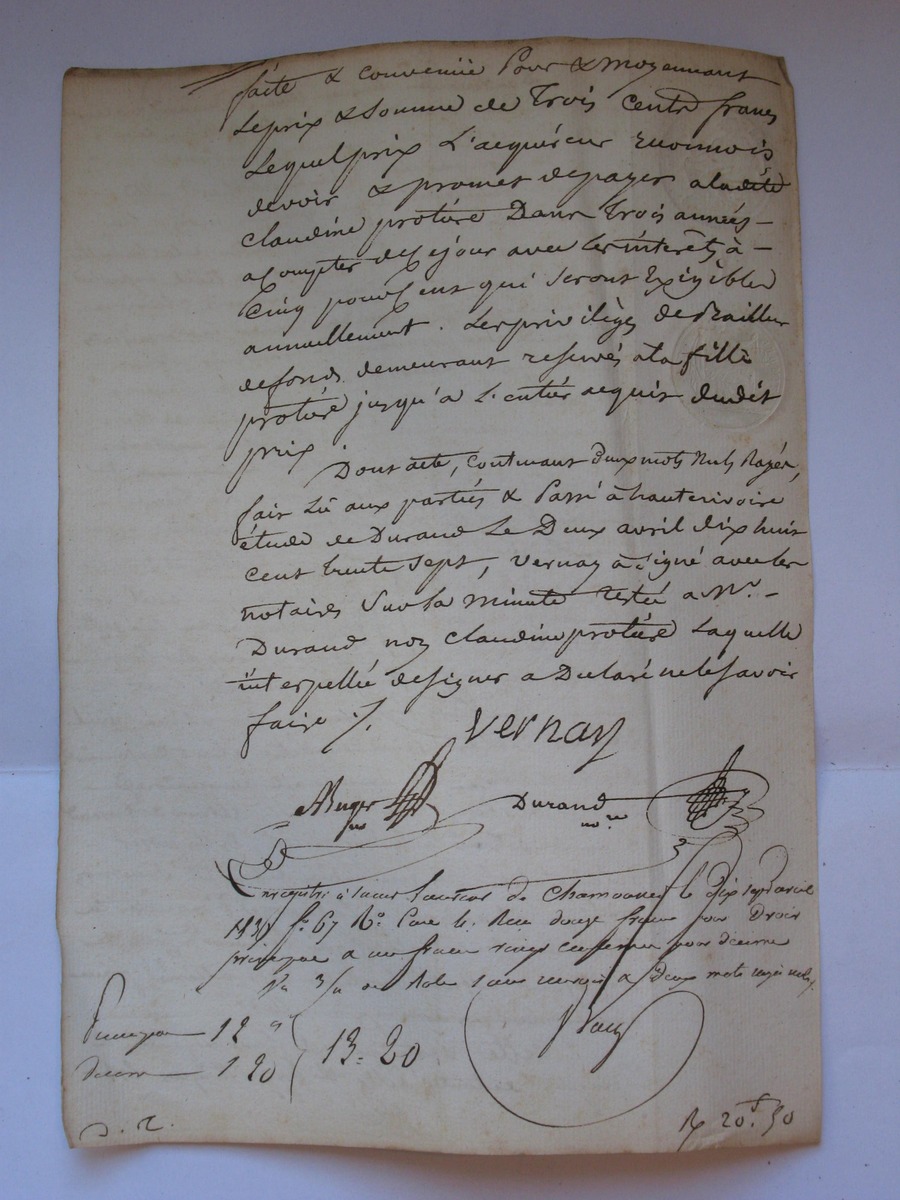 faite & convenüe Pour & moyennant
Le prix & Somme de Trois Cents francs
Lequel prix L'acquéreur reconnois
devoir & promet de payer a ladite
Claudine protière Dans trois années –
a Compter de Ce jour avec les interêts à –
Cinq pour Cent qui Seront Exigibles
annuellement . Les privilèges de Bailleur
de fonds demeurant reservés à la fille
protière jusqu'a L'entier acquis dudit
prix .
Dont acte, Contenant deux mots Nuls Rayés,
fait Lû aux parties & Passé à hauterivoire
étude de Durand Le Deux avril dix huit
Cent trente Sept, Vernay à Signé avec les
notaires Sur la Minute restée a Mr. –
Durand non Claudine protière Laquelle
interpellée de Signer a Déclaré ne le Savoir
faire ./.
Vernay
Durand
nore
Enregistré à Saint Laurent de Chamousset le dix sept avril
1837 fo 67 Ro Case 4. Reçu douze francs pour Droit
principal & un franc vingt centimes pour décime
deux mots rayés nuls ./.
Principal — 12 "
Décime — 1 20
13 = 20
D. R.
R 20f. 50